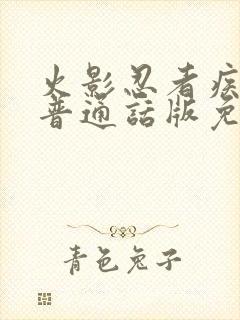 火影忍者疾
普通話版免
青色兔子